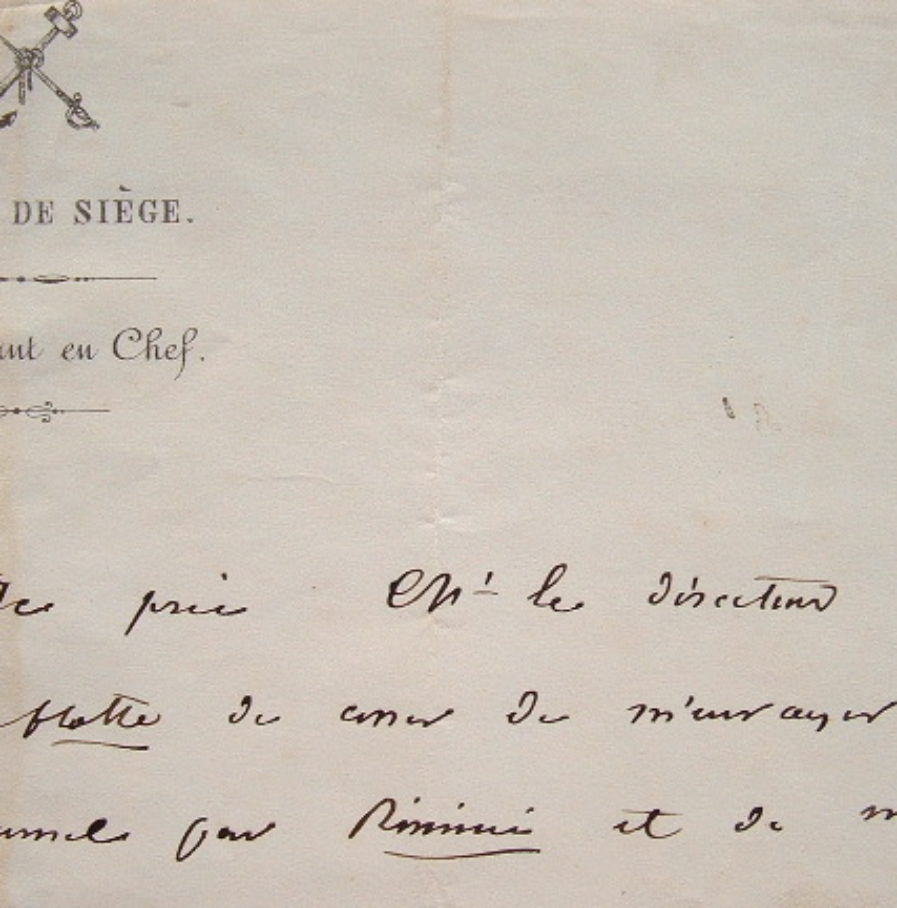 DE SIÈGE.
ant en Chef.
prie Mr le directeur
flotte de cesser de m'envoyer
par Rimini et de